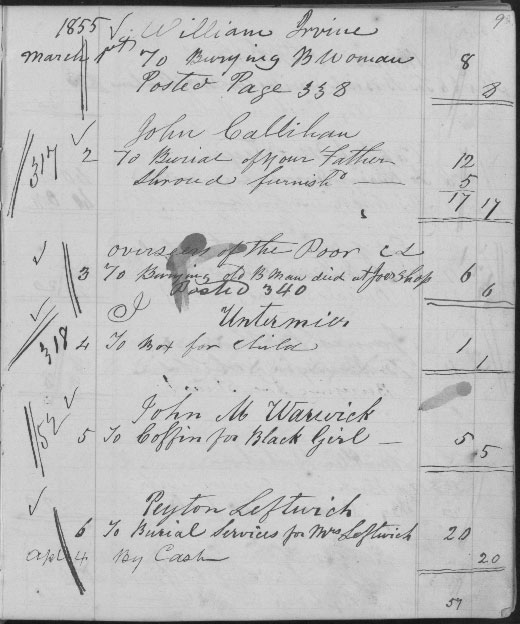 98
1855 William Irvine
March 1st To Burying B Woman 8
Posted Page 338 8
John Callihan
317 2 To Burial of your Father 12
Shroud furnishd — 5
17 17
overseers of the Poor
3 To Burying old B Man died at Joes Shop 6
Posted 340 6
J Untermier
318 4 To Box for Child 1 1
John M Warwick
52 5 To Coffin for Black Girl — 5 5
Peyton Leftwich
6 To Burial Services for Mrs Leftwich 20
Apl 4 By Cash 20
57